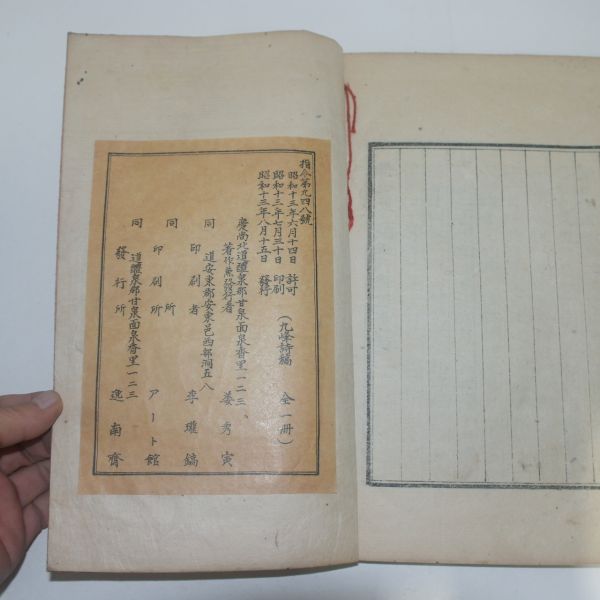 指令第九四八號
昭和十三年六月十四日 許可
昭和十三年七月三十日 印刷
昭和十三年八月十五日 發行
(九峰詩稿 全一冊)
慶尚北道醴泉郡甘泉面泉香里一二三
著作兼發行者 姜秀寅
同 道安東郡安東邑西部洞五八
印刷者 李瓊鎬
同 所
印刷所 アート館
同 道醴泉郡甘泉面泉香里一二三
發行所 逸南齋